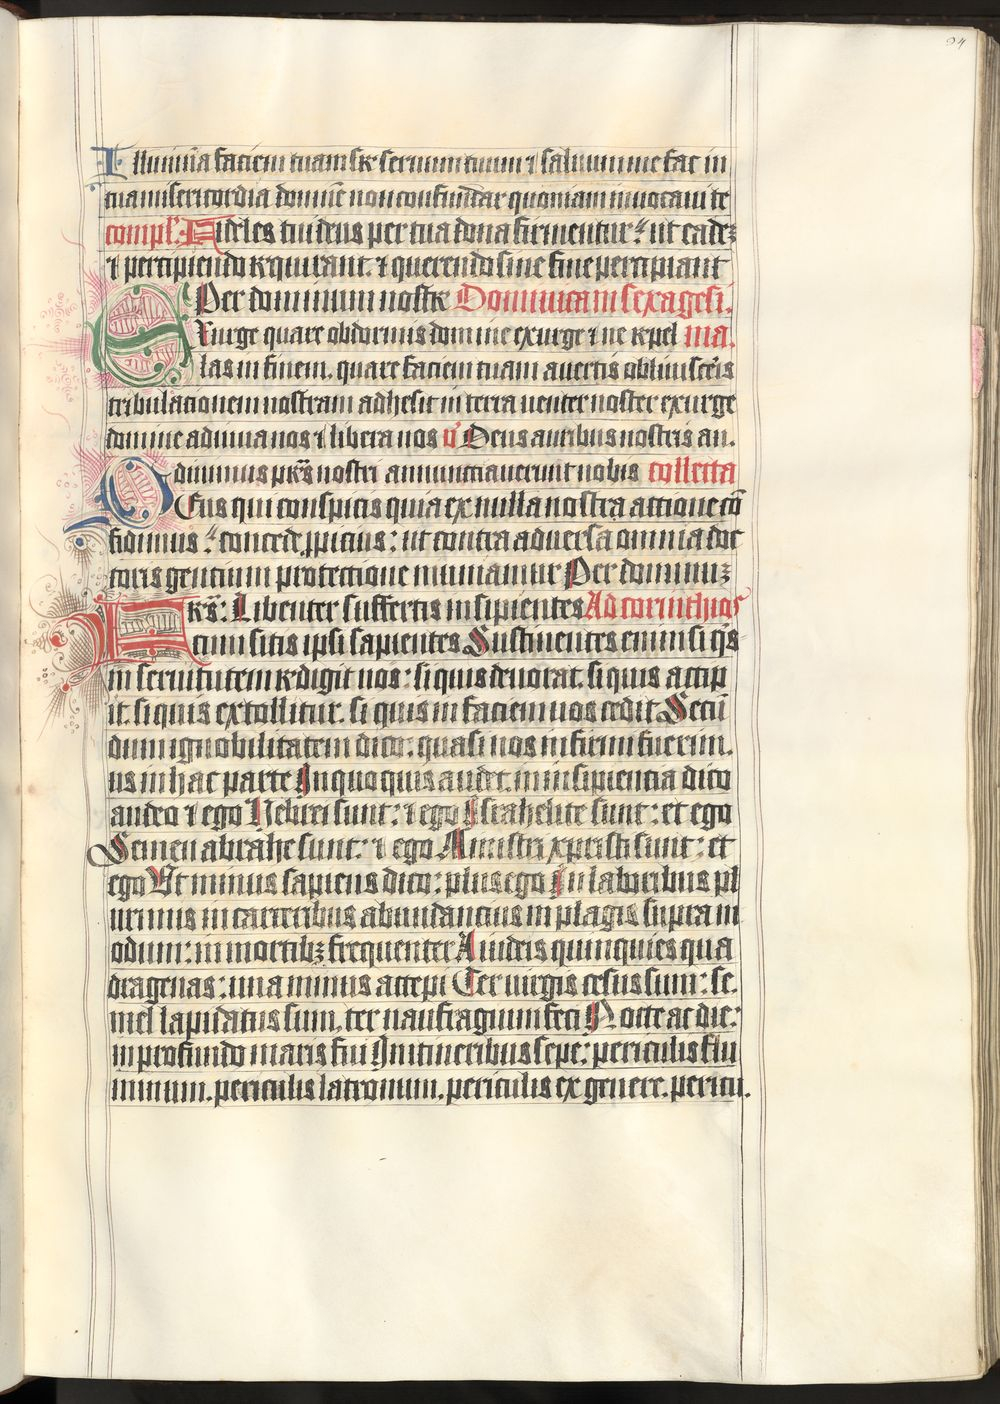 24
Illumina faciem tuam sr seruum tuum ⁊ saluum me fac in
tua misericordia domine non confundar quoniam inuocaui te
compl'. Fideles tui deus per tua dona firmentur: ut eadez
⁊ percipiendo rquirant. ⁊ querendo sine fine percipiant
Per dominum nostr Dominica in sexagesi.
Exurge quare obdormis domine exurge ⁊ ne rpel ma.
las in finem. quare faciem tuam auertis obliuisceris
tribulationem nostram adhesit in terra uenter noster exurge
domine adiuua nos ⁊ libera nos v' Deus auribus nostris au.
diuimus prs nostri annuntiauerunt nobis collecta
Deus qui conspicis quia ex nulla nostra actione cō
fidimus: concede ꝓpicius: ut contra aduersa omnia doc
toris gentium protectione muniamur Per dominuz
Frs: Libenter suffertis insipientes Ad corinthios
cum sitis ipsi sapientes Sustinetes enim si q's
in seruitutem rdigit uos: si quis deuorat. si quis accip
it. si quis extollitur. si quis in faciem uos cedit Secū
dum ignobilitatem dico: quasi nos infirmi fuerim.
us in hac parte In quo quis audet. in insipientia dico
audeo ⁊ ego Hebrei sunt: ⁊ ego Israhelite sunt: et ego
Semen abrahe sunt: ⁊ ego Ministri xpristi sunt: et
ego Ut minus sapiens dico: plus ego In laboribus pl
urimis in carceribus abundancius in plagis supra m
odum: in mortibz frequenter A iudeis quinquies qua
dragenas: una minus accepi Ter uirgis cesus sum: se.
mel lapidatus sum, ter naufragium feci Nocte ac die:
in profundo maris fui In itineribus sepe: periculis flu
minum. periculis latronum. periculis ex genere. pericu.